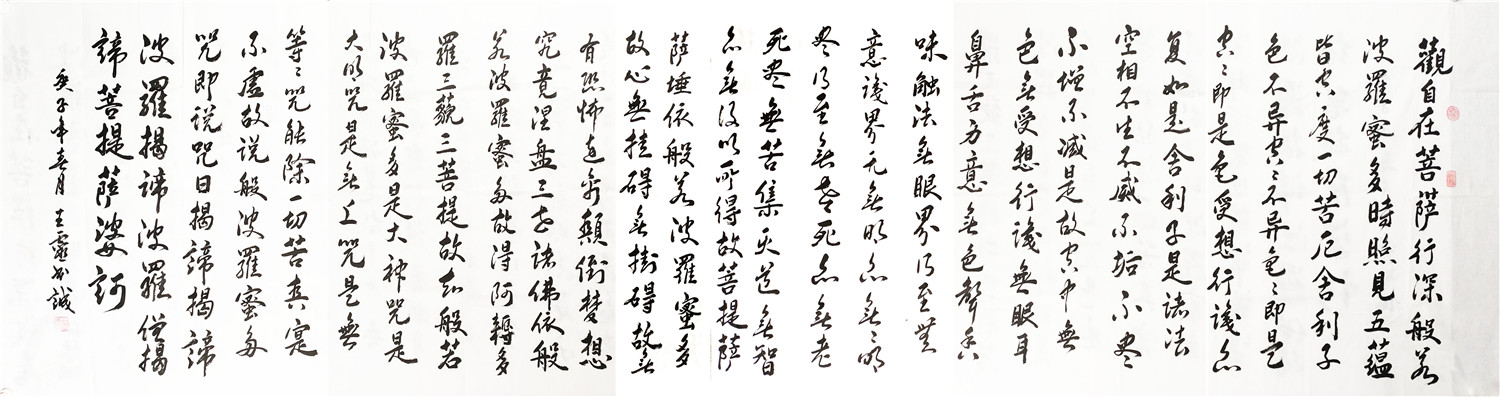 觀自在菩薩行深般若
波羅蜜多時照見五蘊
皆空度一切苦厄舍利子
色不异空〻不异色〻即是
空〻即是色受想行識亦
复如是舍利子是諸法
空相不生不滅不垢不尽
不增不減是故空中無
色無受想行識無眼耳
鼻舌身意無色聲香
味触法無眼界乃至無
意識界无無明亦無〻明
尽乃至無老死亦無老
死尽無苦集灭道無智
亦無得以所得故菩提薩
薩埵依般若波羅蜜多
故心無挂碍無掛碍故無
有恐怖远离顛倒梦想
究竟涅盘三世諸佛依般
若波羅蜜多故得阿耨多
羅三藐三菩提故知般若
波羅蜜多是大神咒是
大明咒是無上咒是無
等〻咒能除一切苦真实
不虛故説般波羅蜜多
咒即説咒曰揭諦揭諦
波羅揭諦波羅僧揭
諦菩提薩婆訶
子年春月 王靈誠